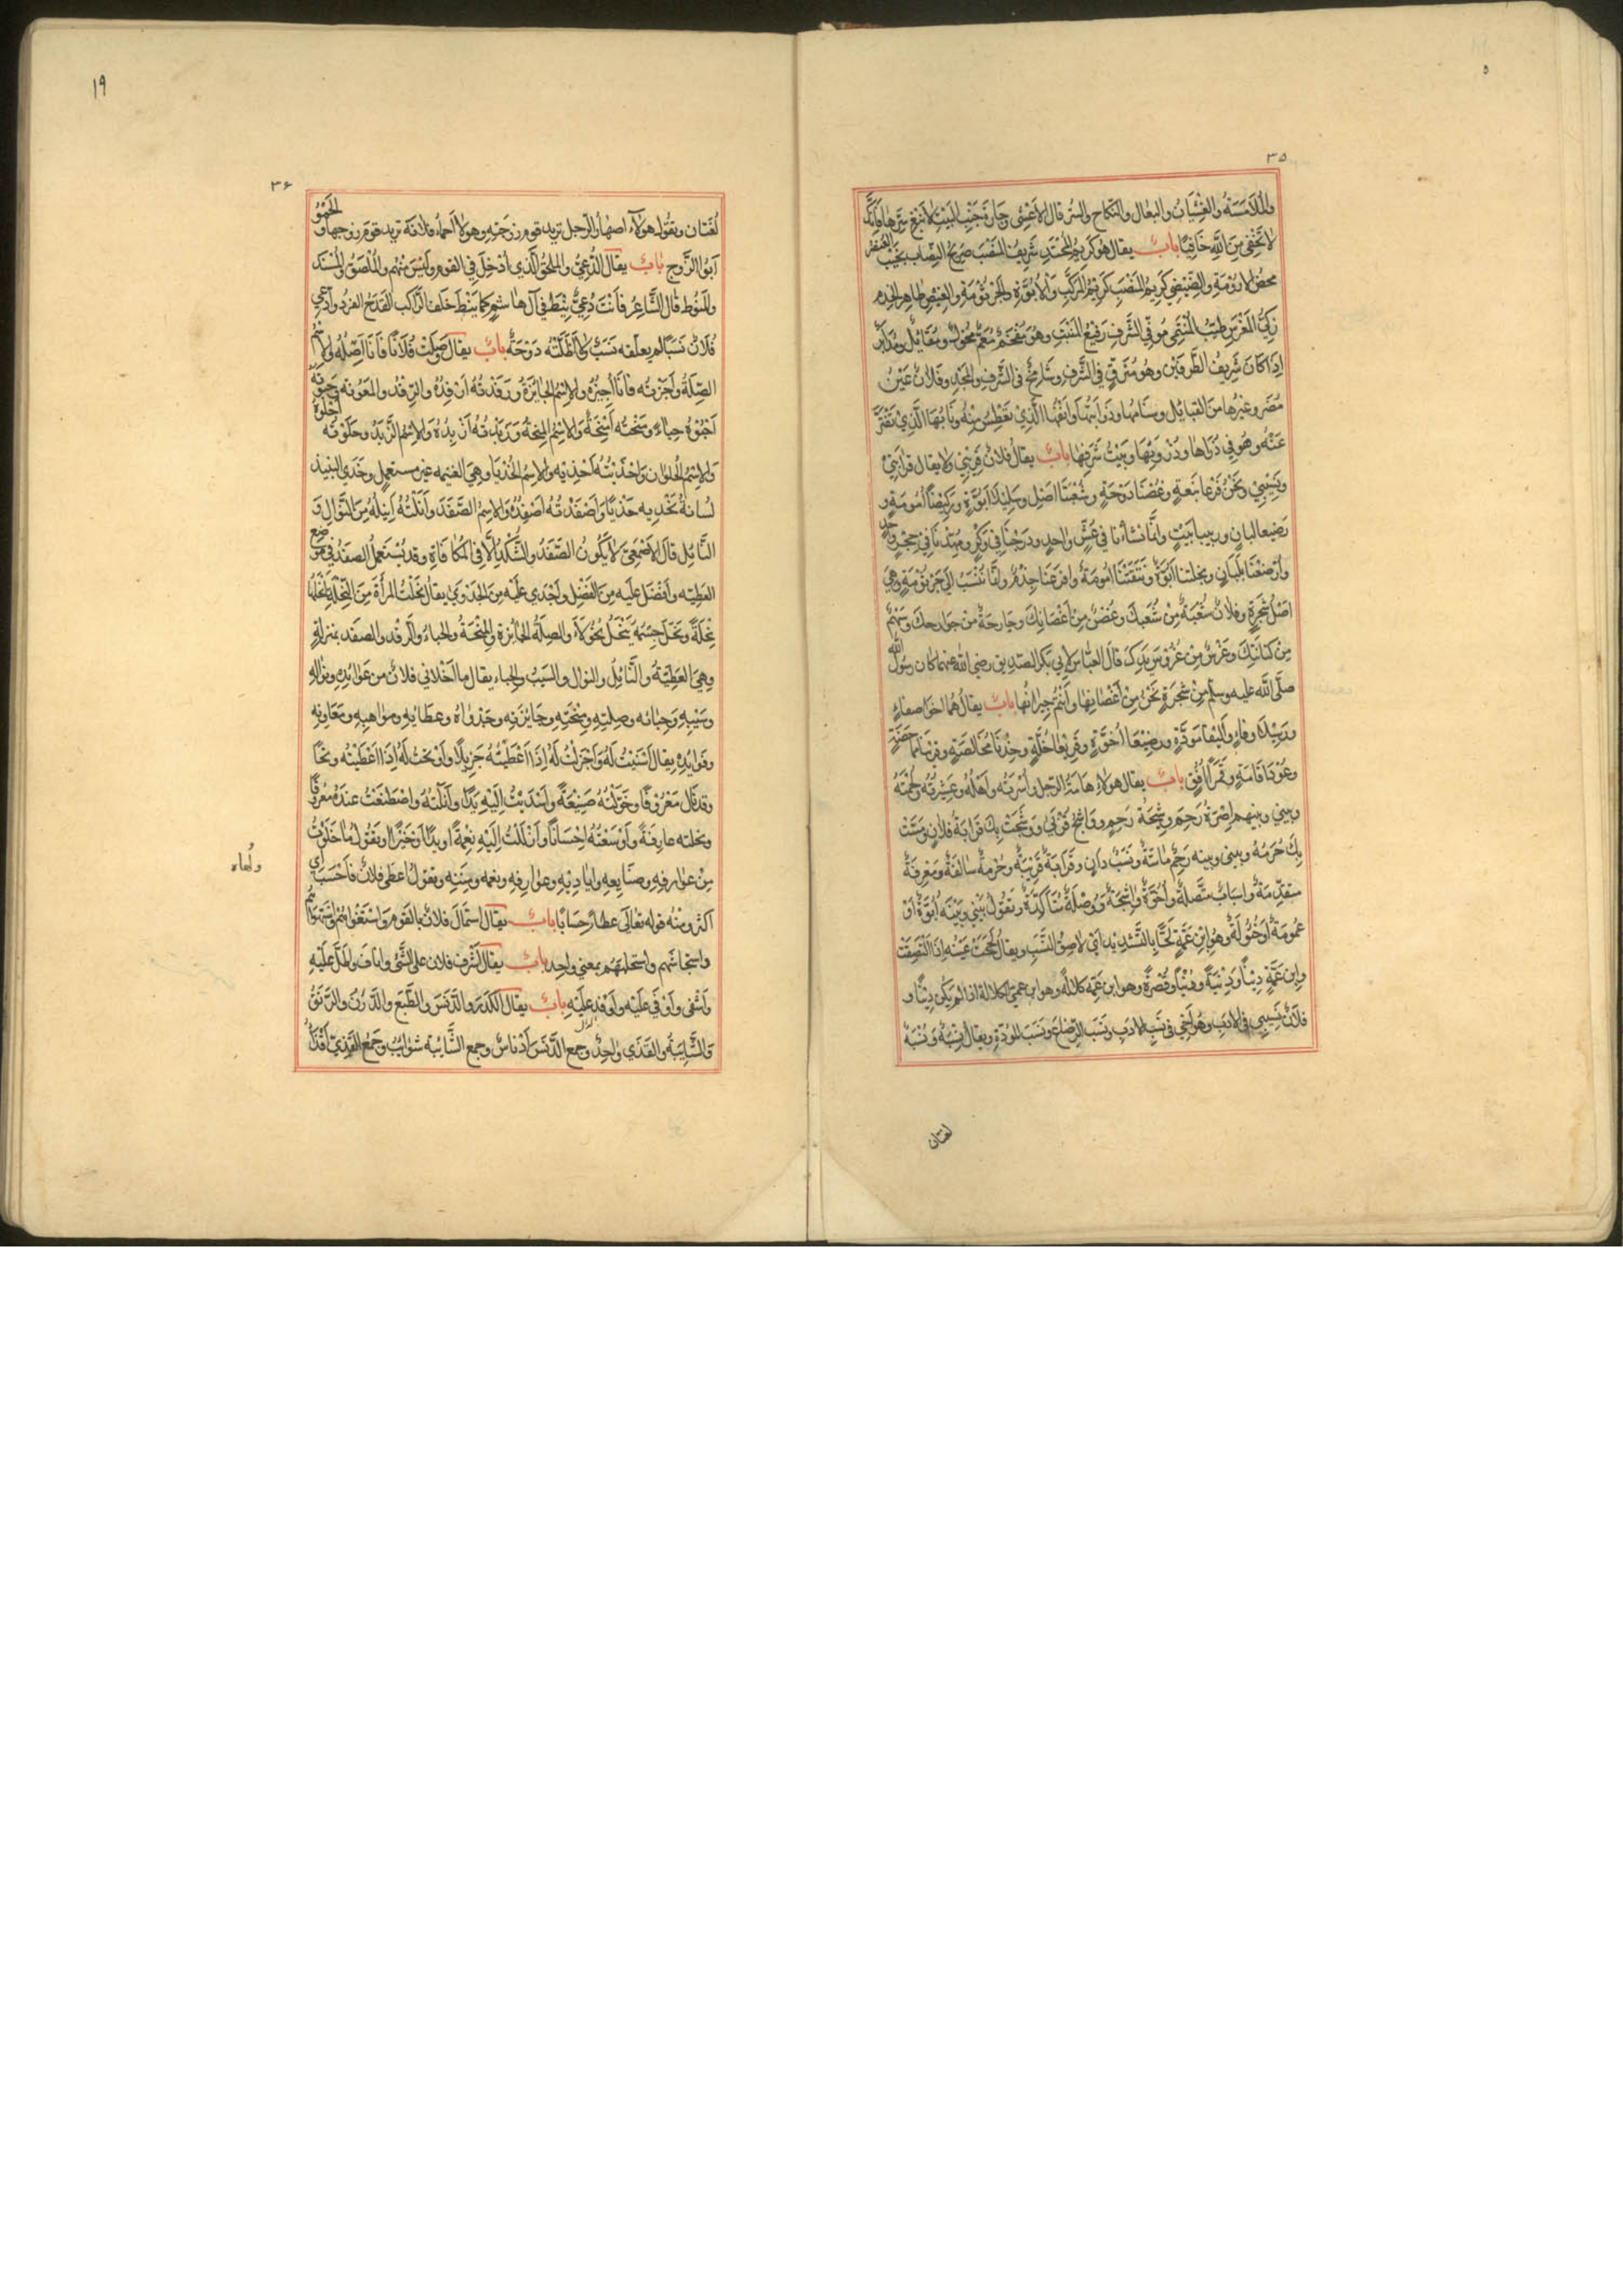 ٣٥
والملامسة والغشيان والبعال والنكاح والسر قال الاعشى وجارة جنب البيت لا تبغ سرها فانك
لا تخفى من الله خافيا باب يقال هو كريم المحتد شريف المنصب صريح النصاب نجيب العنصر
محض الارومة والضئضئ كريم المنصب كريم المركب والابوة والجرثومة والعيص طاهر الجذم
زكي المغرس طيب المنتمى موفي الشرف رفيع المنبت وهو معم مخول ومقابل ومدابر
اذا كان شريف الطرفين وهو معرق في الشرف وشامخ في الشرف والمجد وفلان عين
مضر وغيرها من القبايل وسنامها وذؤابتها وانفها الذي تعطس منه ونابها الذي تفتر
عنه وهو في ذراها وذروتها وبيت شرفها باب يقال فلان قريبي ولا يقال قرابتي
ونسيبي ونحن فرعا نبعة وغصنا دوحة وشعبتا اصل وسليلا ابوة وركيضا امومة و
رضيعا لبان وربيبا بيت وانما نشأنا في عش واحد ودرجنا في وكر ومهدنا في حجر واحد
وارضعنا بلبان ونجلتنا ابوة ونتقتنا امومة وافرعنا جذم وانما ننسب الى جرثومة وهي
اصل شجرة وفلان شعبة من شعبك وغصن من اغصانك وجارحة من جوارحك وسهم
من كنانتك وغرس من غروس يدك قال العباس لابي بكر الصديق رضي الله عنهما كان رسول الله
صلى الله عليه وسلم من شجرة نحن من اغصانها وانتم جيرانها باب يقال هما اخوا صفاء
وزميلا وفاء واليفا مودة ورضيعا اخوة وقريعا خلة وخدنا مخالصة وفرسا
وعودا قامة وقمرا افق باب يقال هؤلاء هامة الرجل واسرته واهله وعشيرته ولحمته
وبيني وبينهم اصرة رحم ووشجة رحم ووشج قربى ووشجت بك قرابة فلان ومست
بك حرمة وبيني وبينه رحم ماتة ونسب دان وقرابة قريبة وحرمة سالفة ومعرفة
متقدمة واسباب متصلة واخوة واشجة ووصلة متأكدة وتقول بيني وبينه ابوة او
عمومة او خؤولة وهو ابن عمه لحا بالتشديد اي لاصق النسب ويقال لححت عينه اذا التصقت
وابن عمه دنيا ودنية ودنيا وقصرة وهو ابن عمه كلالة وهو ابن عم الكلالة اذا لم يكن دنيا و
فلان نسيبي في الادب وهو اخي في نسب الادب ونسب الرضاع ونسب المودة ويقال نسبة ونسبة
لغتان
١٩
٣٦
لغتان ويقول هؤلاء اصهار الرجل تريد قوم زوجته وهؤلاء احماء فلانة تريد قوم زوجها والحمو
ابو الزوج باب يقال الدعي والملحق الذي ادخل في القوم وليس منهم والملصق والمسند
والمنوط قال الشاعر فانت دعي نيط في آل هاشم كما نيط خلف الراكب القدح الفرد وادعي
فلان نسبا لم يعلقه نسب ولا اظلته دوحة باب يقال وصلت فلانا فانا اصله والاسم
الصلة واجزته فانا اجيزه والاسم الجايزة ورفدته ارفده والرفد والمعونة وحبوته
احبوه حباء ومنحته امنحه والاسم المنحة وزبدته ازبده والاسم الزبد وحلوته احلوه
والاسم الحلوان واحذيته احذيه والاسم الحذيا وهي الغنيمة غير مستعمل وحذى النبيذ
لسانه يحذيه حذيا واصفدته اصفده والاسم الصفد وانلته انيله من النوال و
النائل قال الاصمعي لا يكون الصفد والشكد الا في المكافاة وقد يستعمل الصفد في موضع
العطية وافضل عليه من الفضل واجدى عليه من الجدوى يقال نحلت المرأة من النحلة انحلها
نحلة ونحل جسمه ينحل نحولا والصلة الجائزة والمنحة والحباء والرفد والصفد بمنزلة
وهي العطية والنائل والنوال والسيب والحباء يقال ما اخلاني فلان من عوائده ونواله
وسيبه وحبائه وصلته ومنحته وجايزته وجدواه وعطاياه ومواهبه ومعاونه
وفوائده يقال اسنيت له واجزلت له اذا اعطيته جزيلا واوتحت له اذا اعطيته وتحا
وقد نال معروفا وخولته صنيعة واسديت اليه يدا وانلته واصطنعت عنده معروفا
ونحلته عارفة واوسعته احسانا وازللت اليه نعمة او يدا او خيرا وتقول ما خلوت
من عوارفه وصنايعه واياديه وعوارفه ونعمه ومننه وتقول اعطى فلان فاحسب اي
اكثر ومنه قوله تعالى عطاء حسابا باب يقال استمال فلان بالقوم واستغواهم واستهواهم
واستجاشهم واستجلبهم بمعنى واحد باب يقال اشرف فلان على الشئ واناف واطل عليه
واشفى واوفى عليه واوفد عليه باب يقال الكدر والدنس والطبع والدرن والرنق
والشايبة والقذى واحد وجمع الدنس ادناس وجمع الشايبة شوايب وجمع القذى اقذاء